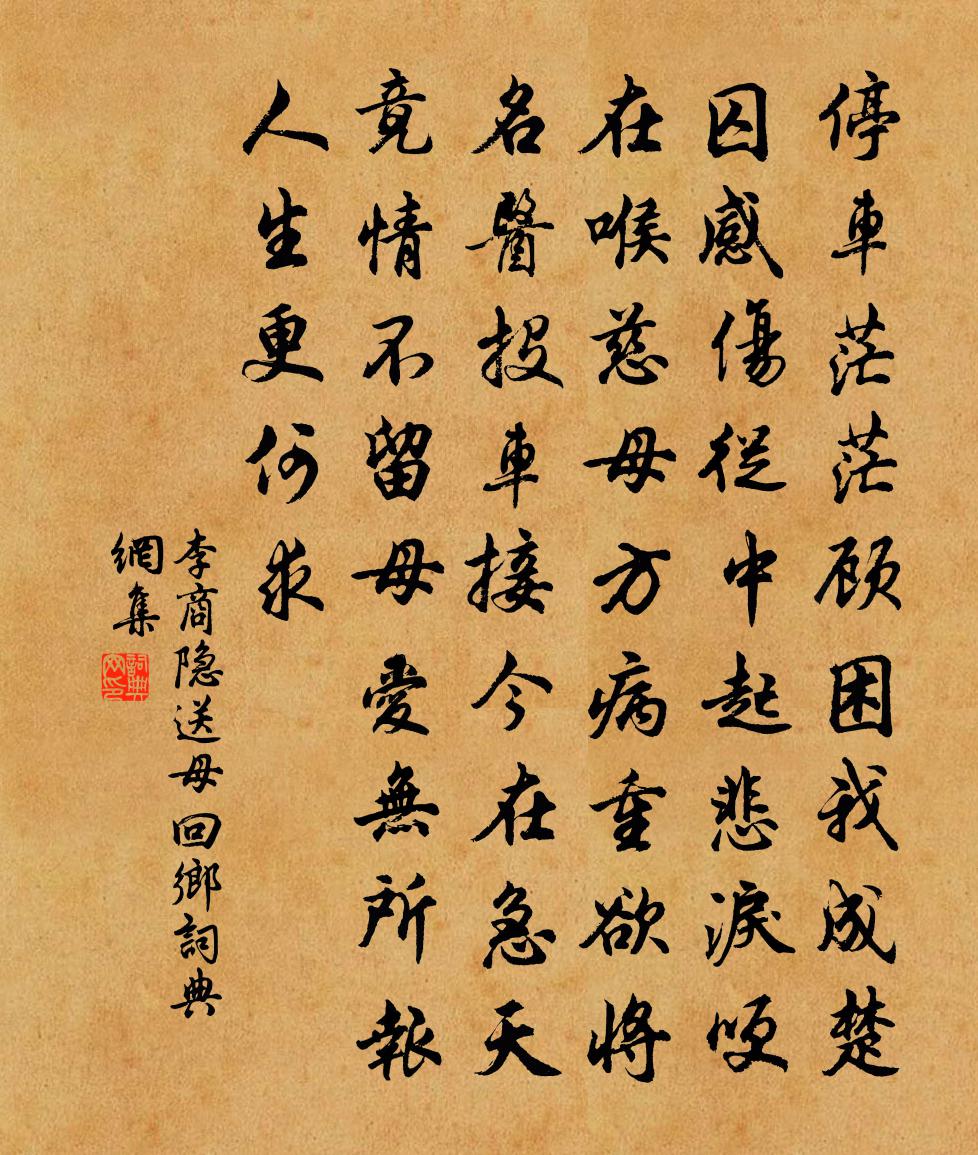 停車茫茫顾困我成楚
囚感傷從中起悲淚哽
在喉慈母方病重欲將
名醫投車接今在急天
竟情不留母愛無所報
人生更何求
李商隐送母回鄉詞典
網集
詞典
网印